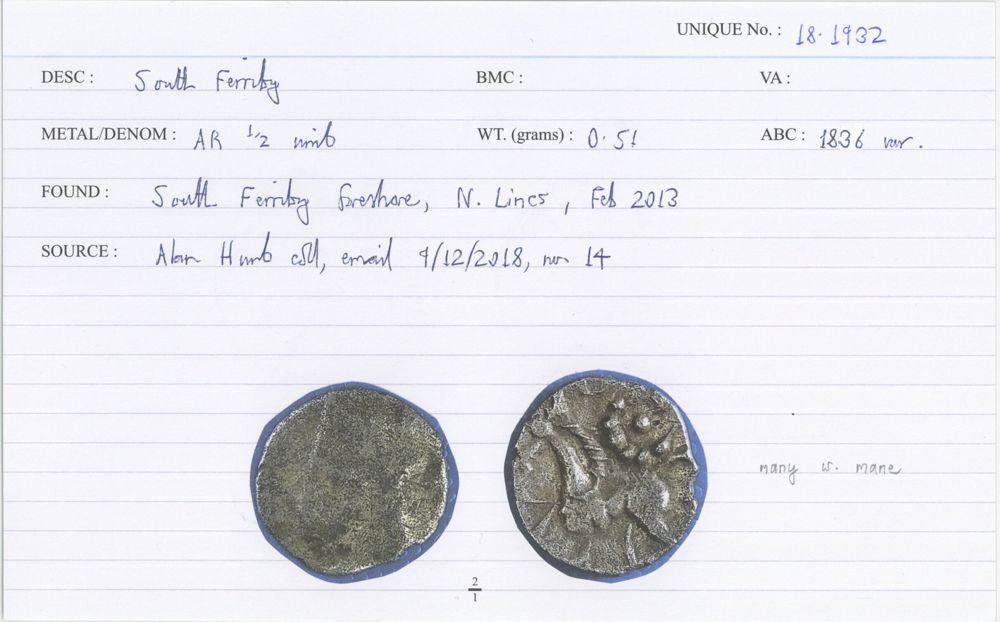 UNIQUE No. : 18.1932
DESC : South Ferriby BMC : VA :
METAL/DENOM : AR 1/2 unit WT. (grams) : 0.51 ABC : 1836 var.
FOUND : South Ferriby foreshore, N. Lincs, Feb 2013
SOURCE : Alan Hunt coll, email 9/12/2018, no. 14
many w. mane
2
1